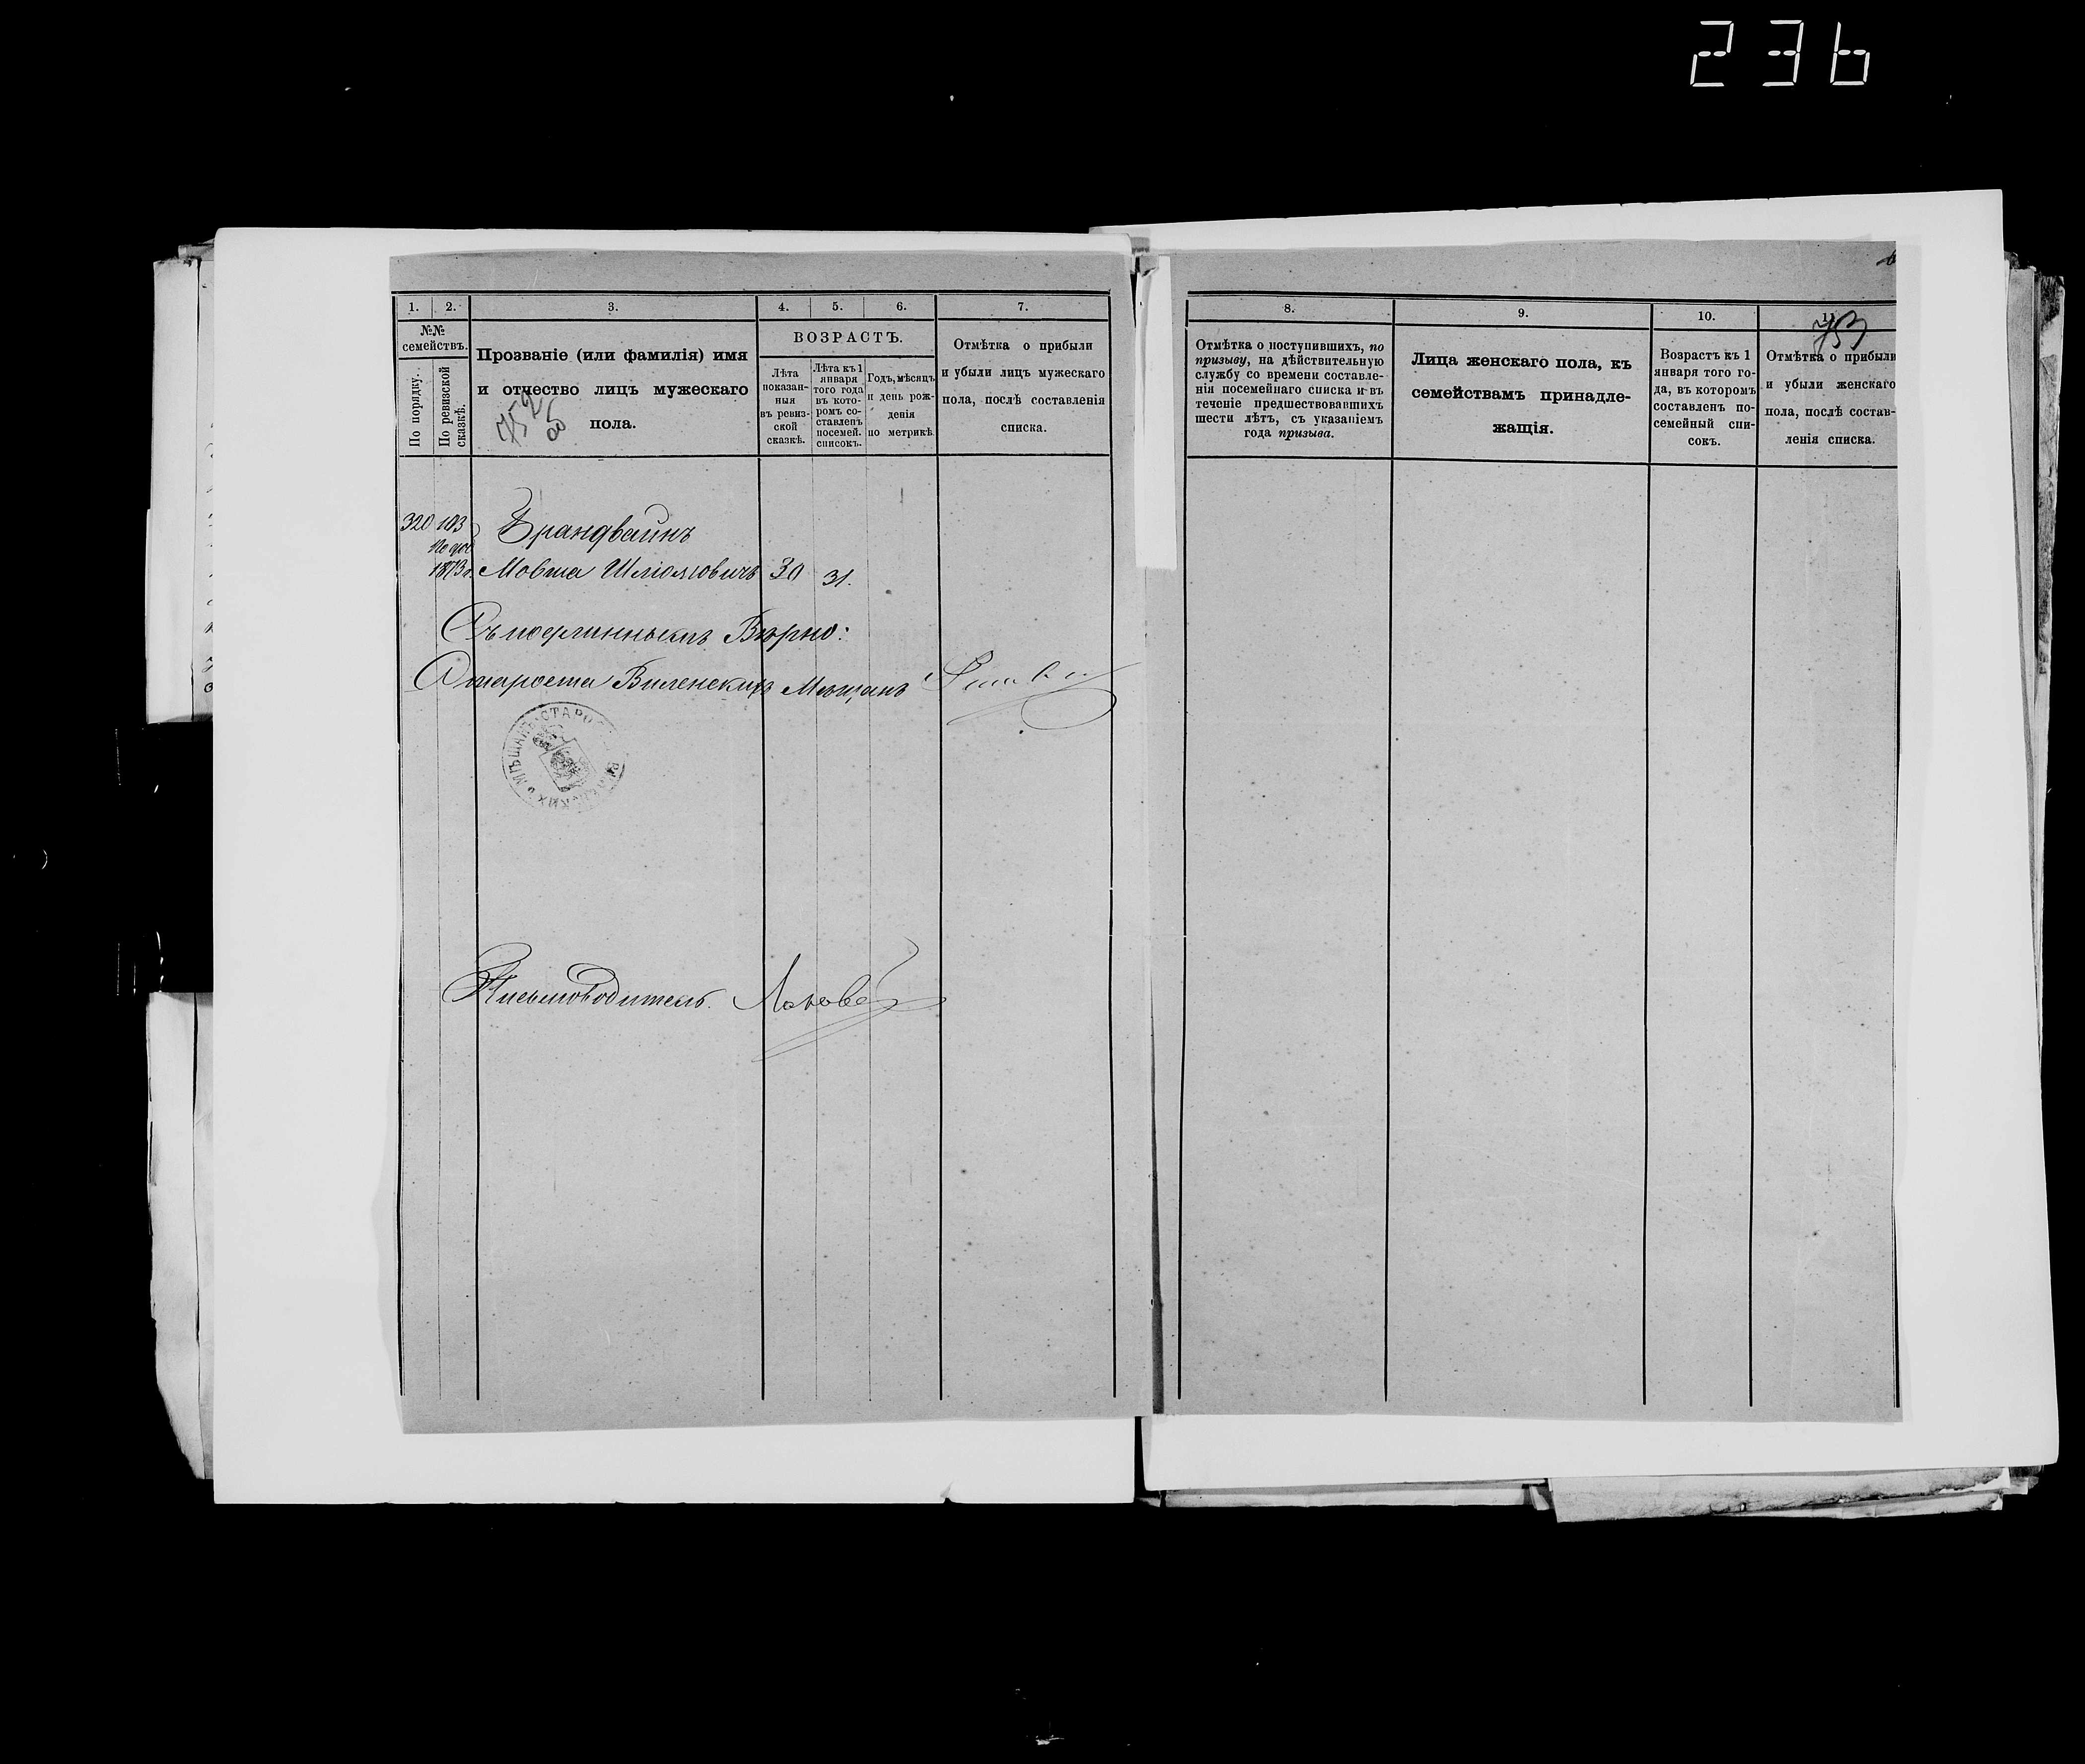 236
1.
2.
3.
4.
5.
6.
7.
№№
семействъ.
По порядку.
По ревизской
сказкѣ.
Прозваніе (или фамилія) имя
и отчество лицъ мужескаго
пола.
752
об
ВОЗРАСТЪ.
Лѣта
показан-
ныя
въ ревиз-
ской
сказкѣ.
Лѣта къ 1
января
того года
въ кото-
ромъ со-
ставленъ
посемей.
списокъ.
Годъ, мѣсяцъ
и день рож-
денія
по метрикѣ.
Отмѣтка о прибыли
и убыли лицъ мужескаго
пола, послѣ составленія
списка.
320 103 Брандвайнъ
1873 г. Мовша Шліомовичъ 30 31.
Съ подлиннымъ Вѣрно:
Староста Виленскихъ Мѣщанъ
Письмоводитель.
8.
9.
10.
11.
753
Отмѣтка о поступившихъ, по
призыву, на дѣйствительную
службу со времени составле-
нія посемейнаго списка и въ
теченіе предшествовавшихъ
шести лѣтъ, съ указаніемъ
года призыва.
Лица женскаго пола, къ
семействамъ принадле-
жащія.
Возрастъ къ 1
января того го-
да, въ которомъ
составленъ по-
семейный спи-
сокъ.
Отмѣтка о прибыли
и убыли женскаго
пола, послѣ состав-
ленія списка.